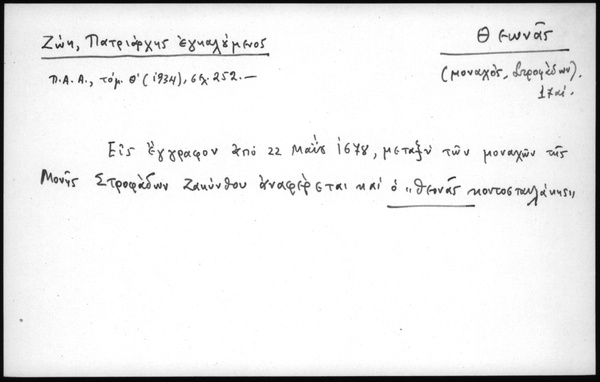 Ζώη, Πατριάρχης ἐγκαλούμενος
Π.Α.Α., τόμ. Θ' (1934), σελ. 252.—
Θεωνᾶς
(μοναχὸς, Στροφάδων).
17 αἰ.
Εἰς ἔγγραφον ἀπό 22 Μαΐου 1678, μεταξὺ τῶν μοναχῶν τῆς
Μονῆς Στροφάδων Ζακύνθου ἀναφέρεται καί ὁ "Θεονᾶς